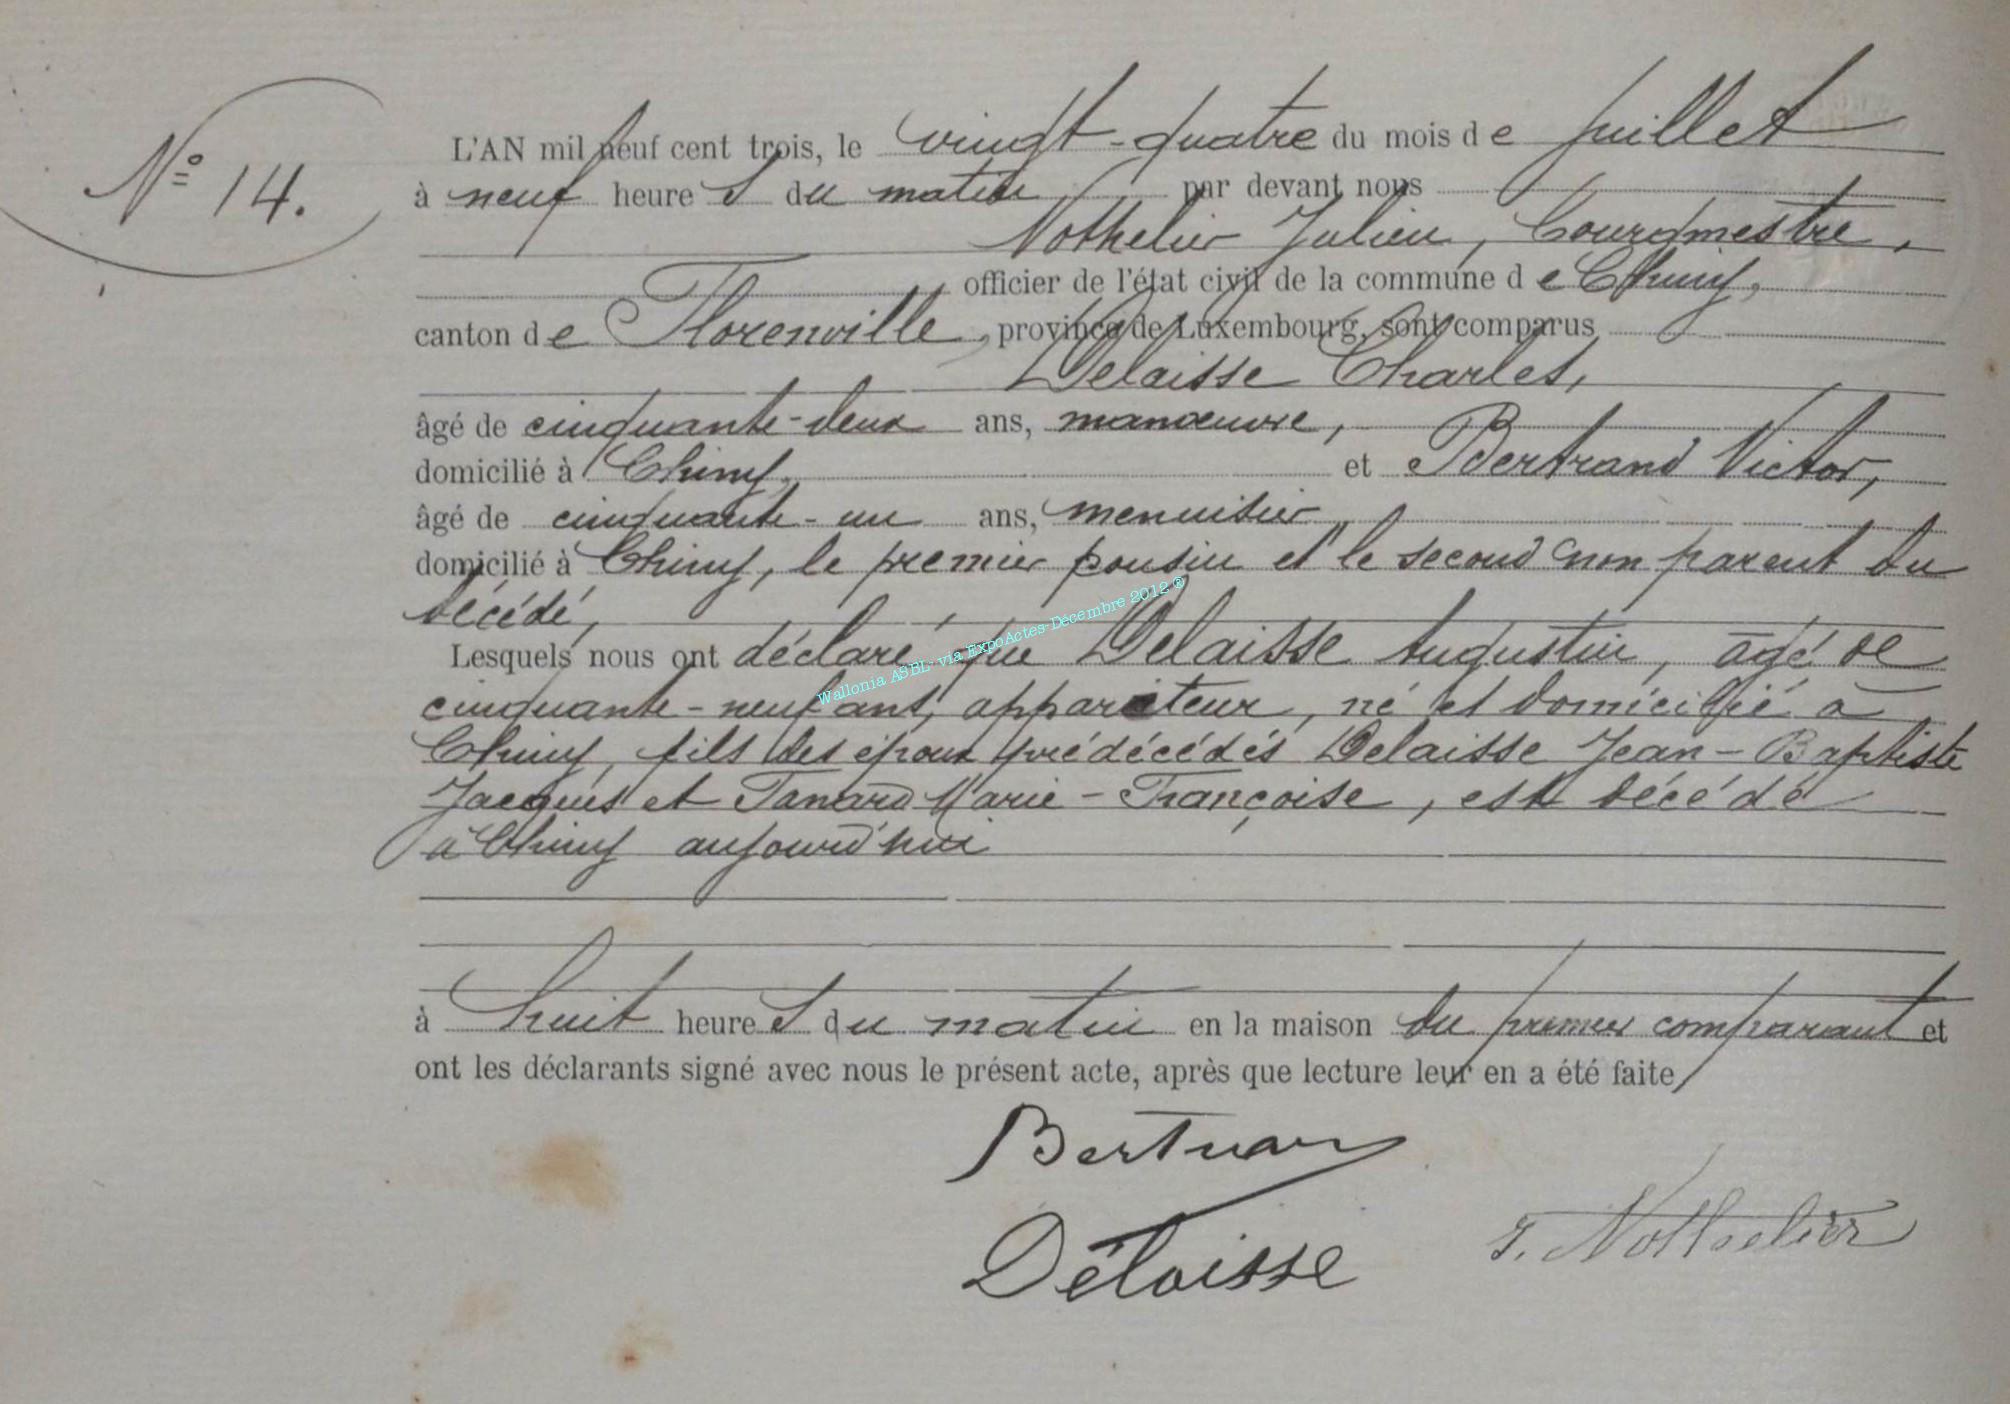 N° 14.
L'AN mil neuf cent trois, le vingt-quatre du mois de Juillet
à neuf heures du matin par devant nous
Nothelier Julien, Bourgmestre,
officier de l'état civil de la commune de Chiny,
canton de Florenville, province de Luxembourg, sont comparus
Delaisse Charles,
âgé de cinquante-deux ans, manœuvre,
domicilié à Chiny, et Bertrand Victor,
âgé de cinquante-un ans, menuisier
domicilié à Chiny, le premier cousin et le second non parent du
décédé,
Lesquels nous ont déclaré que Delaisse Augustin, âgé de
cinquante-neuf ans, appariteur, né et domicilié à
Chiny, fils des époux prédécédés Delaisse Jean-Baptiste
Jacques et Tanard Marie-Françoise, est décédé
à Chiny aujourd'hui
à huit heures du matin en la maison du premier comparant et
ont les déclarants signé avec nous le présent acte, après que lecture leur en a été faite
Bertrand
Délaisse
J. Nothelier
Wallonia ASBL- via ExpoActes-Décembre 2012 ®